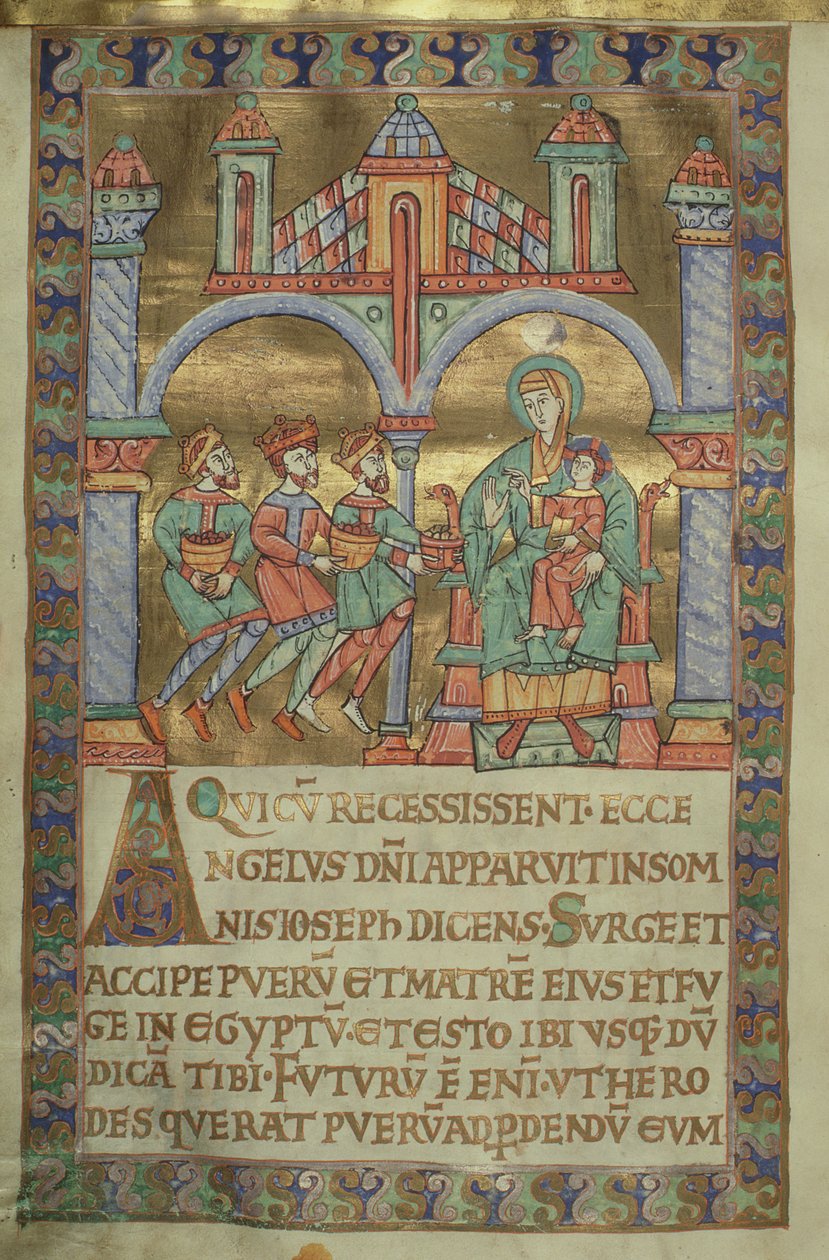 QVICV̄ RECESSISSENT· ECCE
ANGELVS DN̄I APPARVIT IN SOM
NIS IOSEPh DICENS· SVRGE ET
ACCIPE PVERV̄ ET MATRĒ EIVS ET FV
GE IN EGYPTV̄· ET ESTO IBI VSQꝫ DV̄
DICĀ TIBI· FVTVRV̄ Ē ENĪ· VT HERO
DES QVERAT PVERV̄ AD ꝐDENDV̄ EVM